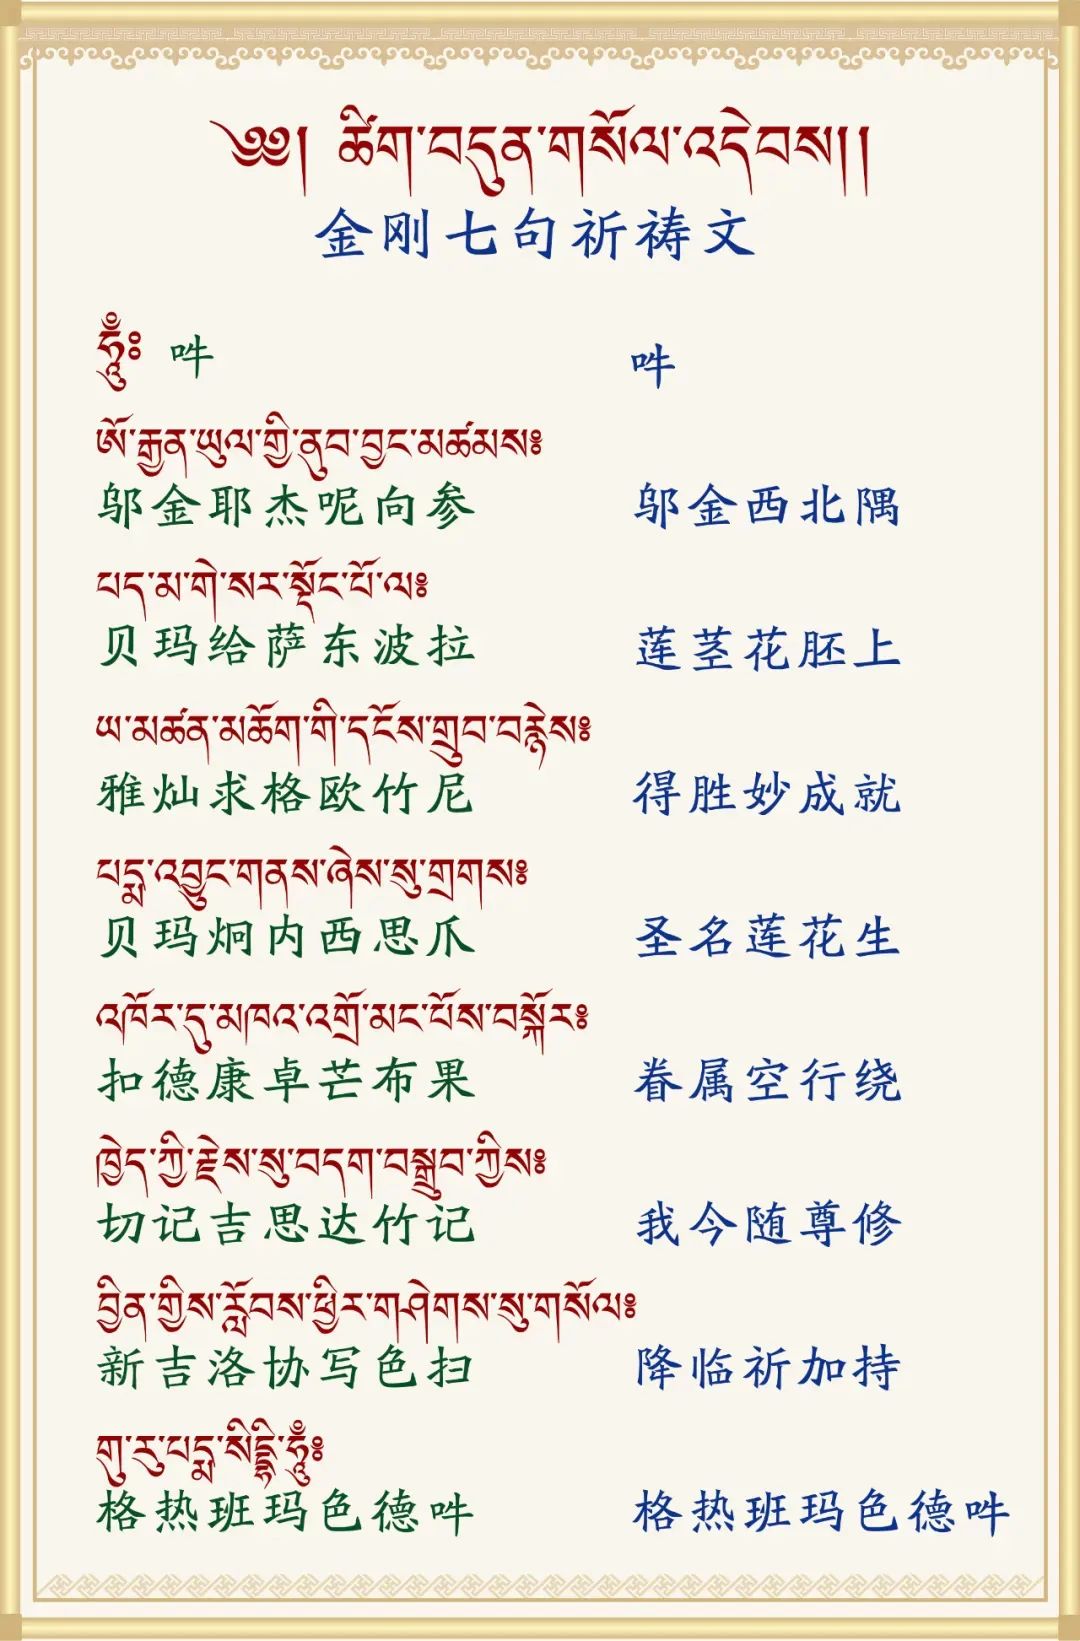 ༄༅། ཚིག་བདུན་གསོལ་འདེབས།།
金刚七句祈祷文
ཧཱུྃ༔ 吽 吽
ཨོ་རྒྱན་ཡུལ་གྱི་ནུབ་བྱང་མཚམས༔
邬金耶杰呢向参 邬金西北隅
པད་མ་གེ་སར་སྡོང་པོ་ལ༔
贝玛给萨东波拉 莲茎花胚上
ཡ་མཚན་མཆོག་གི་དངོས་གྲུབ་བརྙེས༔
雅灿求格欧竹尼 得胜妙成就
པདྨ་འབྱུང་གནས་ཞེས་སུ་གྲགས༔
贝玛炯内西思爪 圣名莲花生
འཁོར་དུ་མཁའ་འགྲོ་མང་པོས་བསྐོར༔
扣德康卓芒布果 眷属空行绕
ཁྱེད་ཀྱི་རྗེས་སུ་བདག་བསྒྲུབ་ཀྱིས༔
切记吉思达竹记 我今随尊修
བྱིན་གྱིས་རློབས་ཕྱིར་གཤེགས་སུ་གསོལ༔
新吉洛协写色扫 降临祈加持
གུ་རུ་པདྨ་སིདྡྷི་ཧཱུྃ༔
格热班玛色德吽 格热班玛色德吽